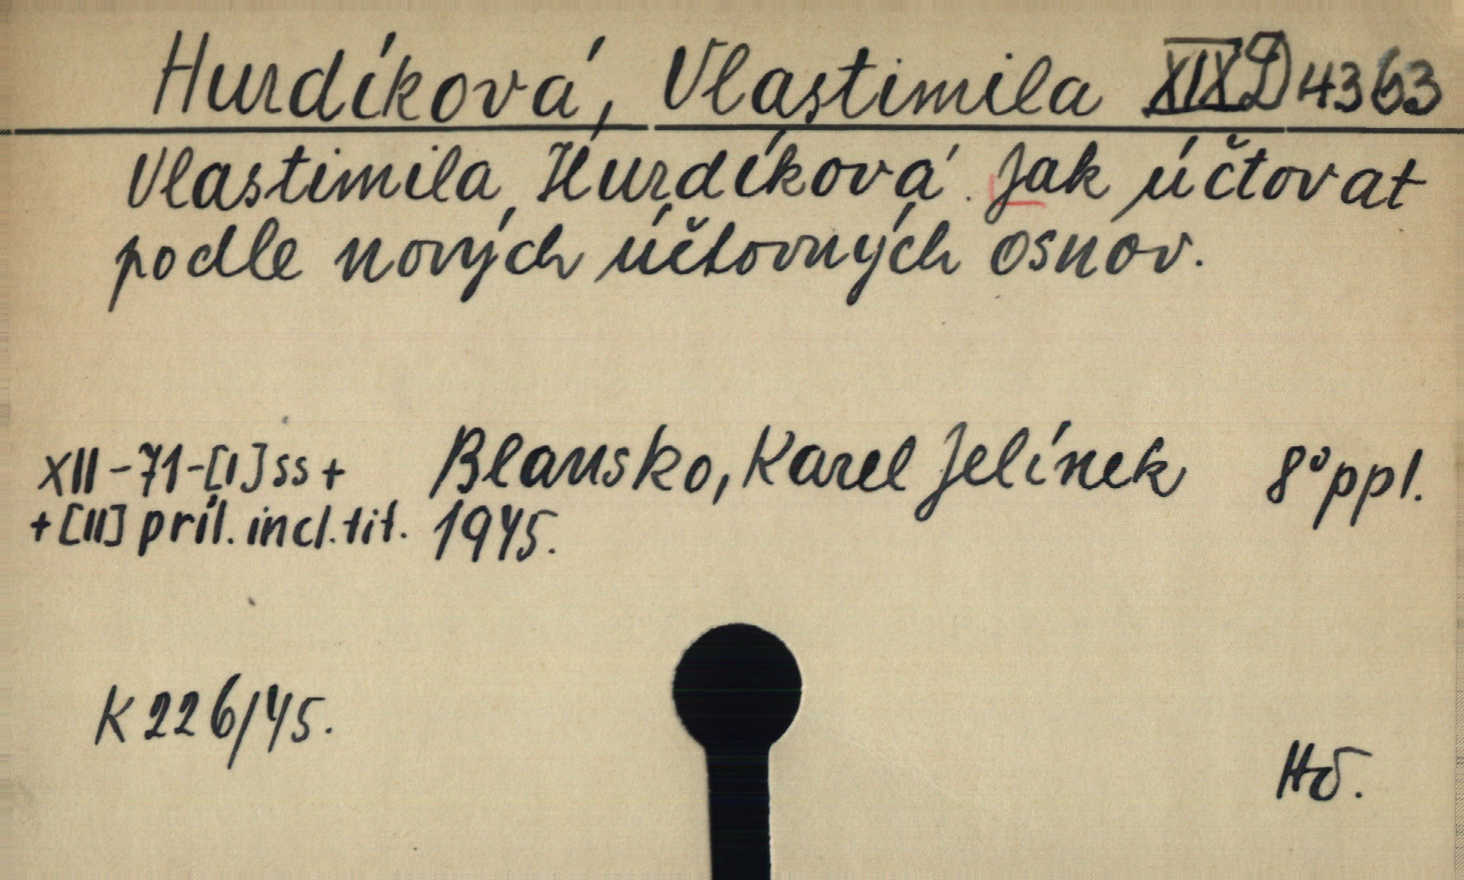 Hurdíková, Vlastimila XIX D 4363
Vlastimila Hurdíková. Jak účtovat
podle nových účtovných osnov.
XII-71-[I] ss + Blansko, Karel Jelínek 8° ppl.
+ [II] príl. incl. tit. 1945.
K 226/45.